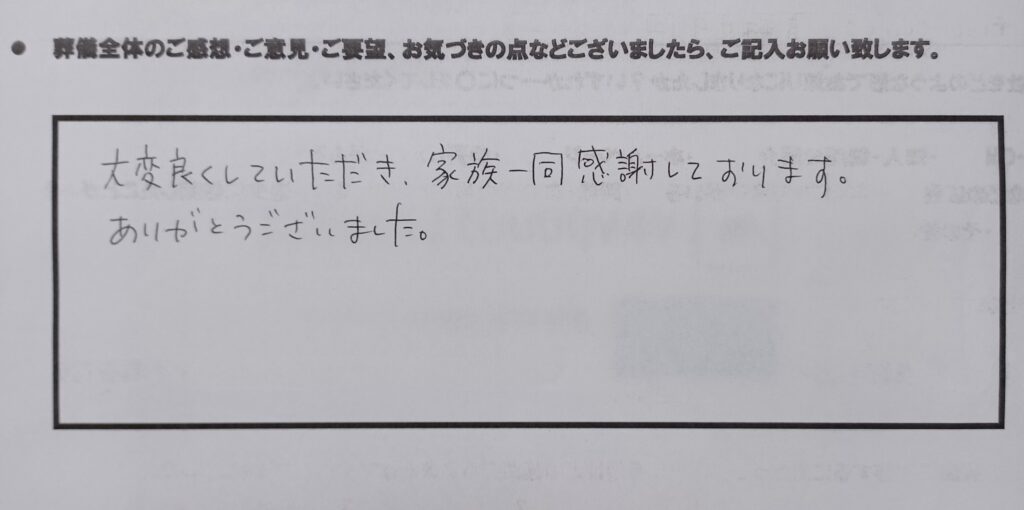 ● 葬儀全体のご感想・ご意見・ご要望、お気づきの点などございましたら、ご記入お願い致します。
大変良くしていただき、家族一同感謝しております。
ありがとうございました。